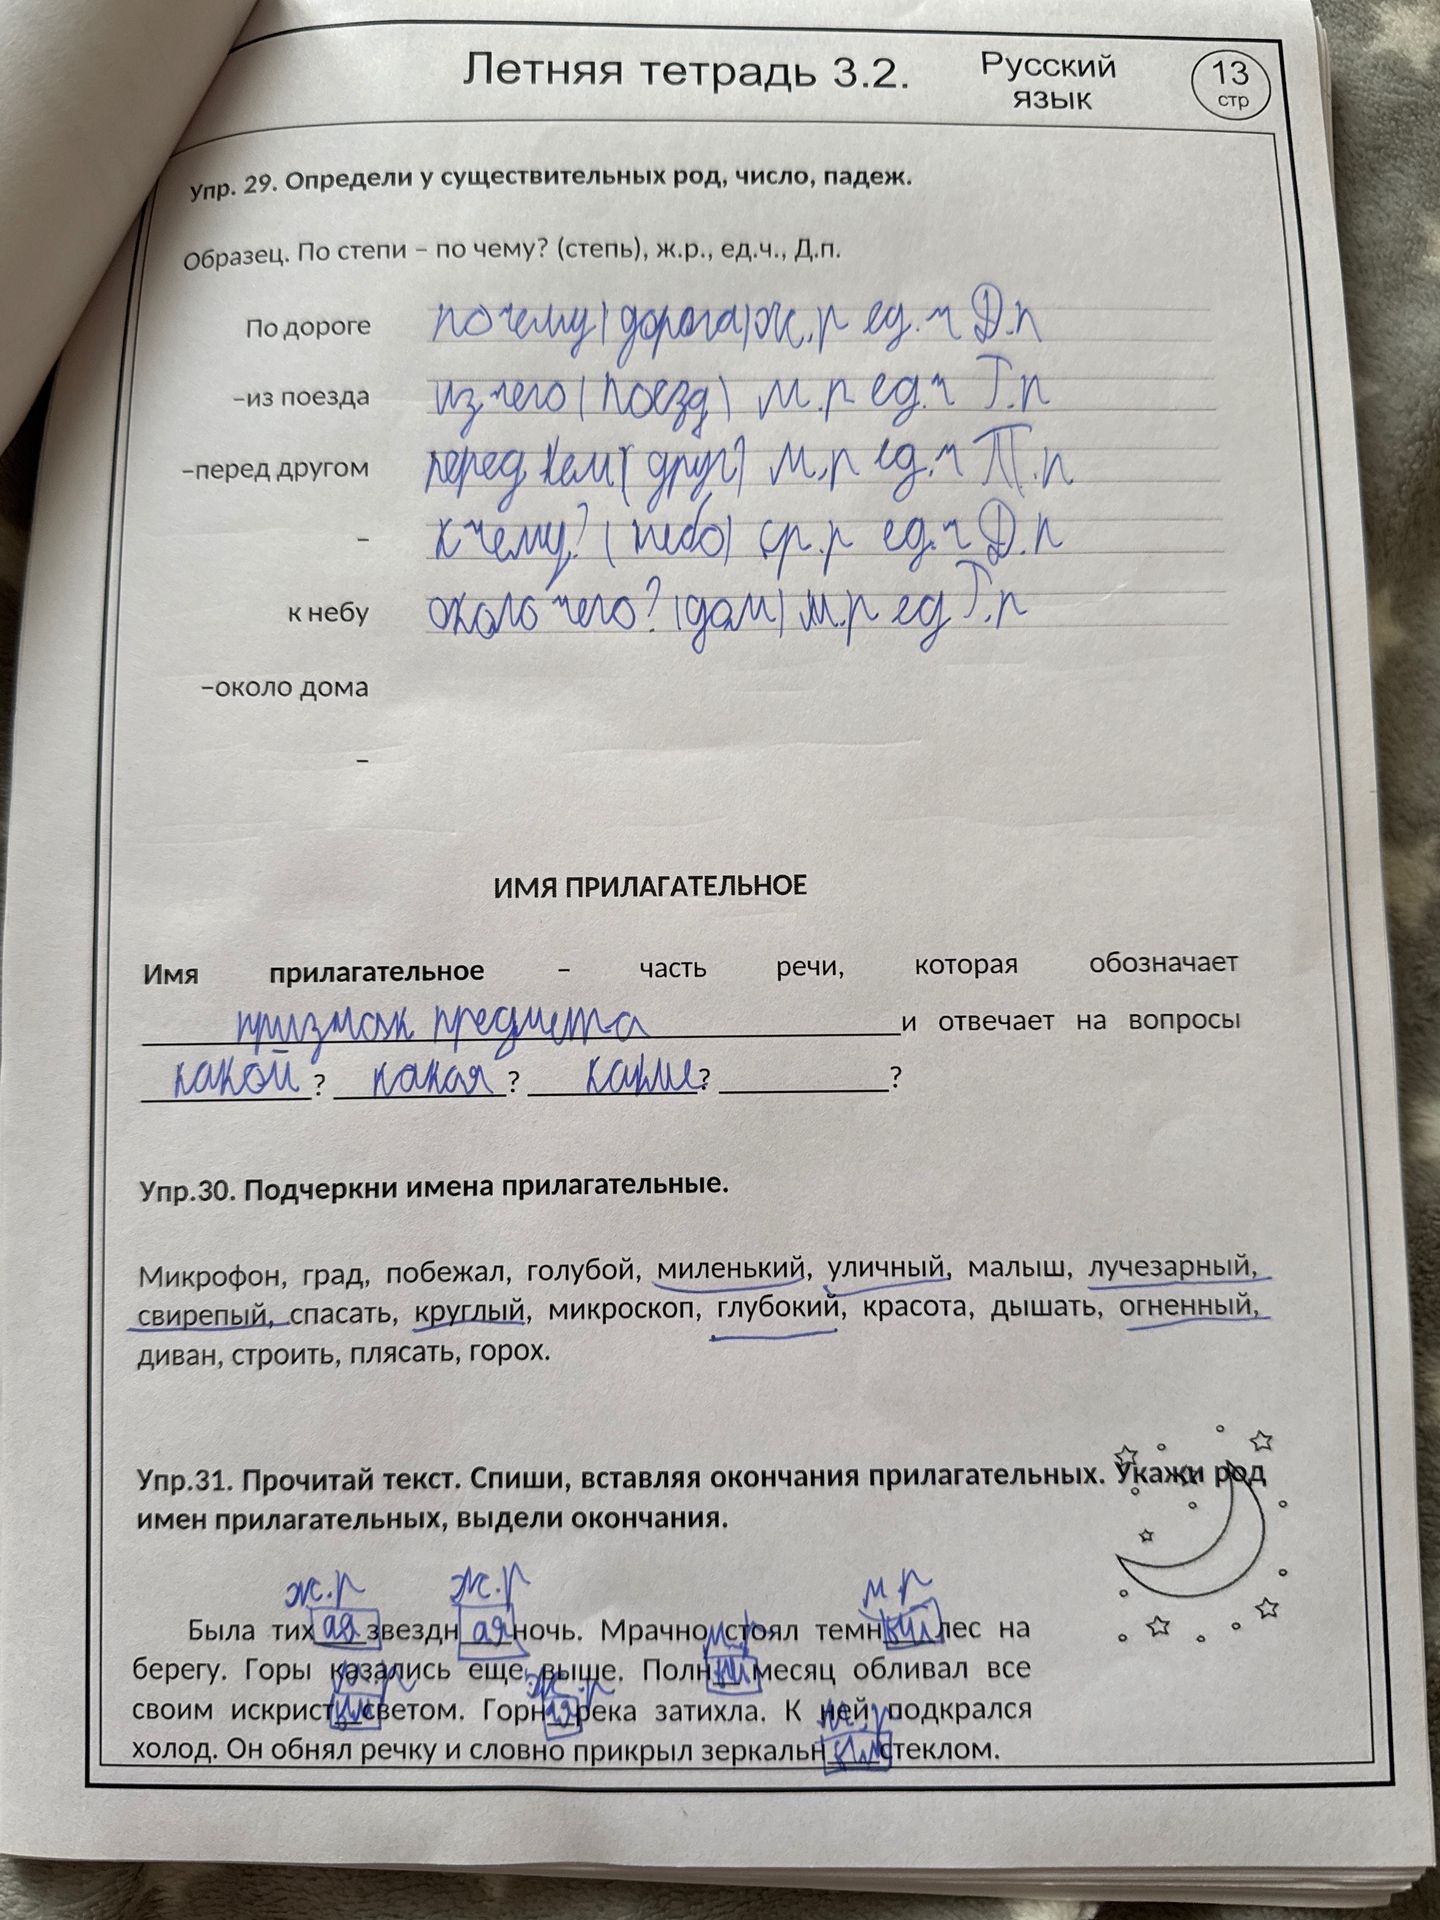 Летняя тетрадь 3.2.
Русский
язык
13
стр
Упр. 29. Определи у существительных род, число, падеж.
Образец. По степи – по чему? (степь), ж.р., ед.ч., Д.п.
По дороге почему (дорога) ж.р ед.ч Д.п
–из поезда из чего (поезд) м.р ед.ч Р.п
–перед другом перед кем (друг) м.р ед.ч П.п
– к чему? (небо) ср.р ед.ч Д.п
к небу около чего? (дом) м.р ед Р.п
–около дома
–
ИМЯ ПРИЛАГАТЕЛЬНОЕ
Имя прилагательное – часть речи, которая обозначает
признак предмета и отвечает на вопросы
какой ? какая ? какие ? ?
Упр.30. Подчеркни имена прилагательные.
Микрофон, град, побежал, голубой, миленький, уличный, малыш, лучезарный,
свирепый, спасать, круглый, микроскоп, глубокий, красота, дышать, огненный,
диван, строить, плясать, горох.
Упр.31. Прочитай текст. Спиши, вставляя окончания прилагательных. Укажи род
имен прилагательных, выдели окончания.
ж.р ж.р м.р
Была тих ая звездн ая ночь. Мрачно стоял темн лес на
берегу. Горы казались еще выше. Полн месяц обливал все
своим искрист светом. Горн ая река затихла. К ней подкрался
холод. Он обнял речку и словно прикрыл зеркальн стеклом.